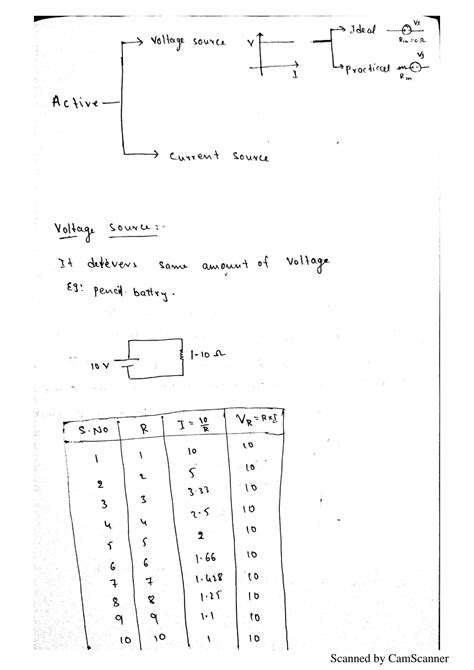 Active
Voltage source
V
I
Ideal
Vs
Rin=0Ω
Practical
Vs
Rin
Current source
Voltage Source :-
It delevers same amount of voltage
Eg: pencil battry.
10 V
1-10 Ω
S.NO R I = 10/R VR = R×I
1 1 10 10
2 2 5 10
3 3 3.33 10
4 4 2.5 10
5 5 2 10
6 6 1.66 10
7 7 1.428 10
8 8 1.25 10
9 9 1.1 10
10 10 1 10
Scanned by CamScanner